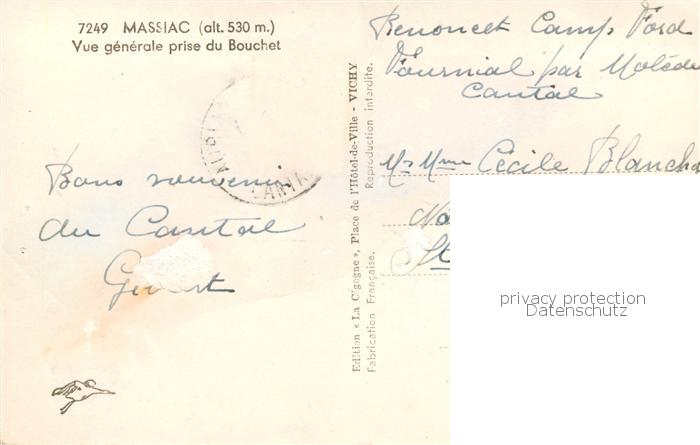 7249 MASSIAC (alt. 530 m.)
Vue générale prise du Bouchet
Bons souvenir
du Cantal
Edition « La Cigogne », Place de l'Hôtel-de-Ville - VICHY
Fabrication Française. Reproduction interdite.
Camp Ford
Fournial par Molède
Cantal
Mr Mme Cécile Blancha
St
privacy protection
Datenschutz